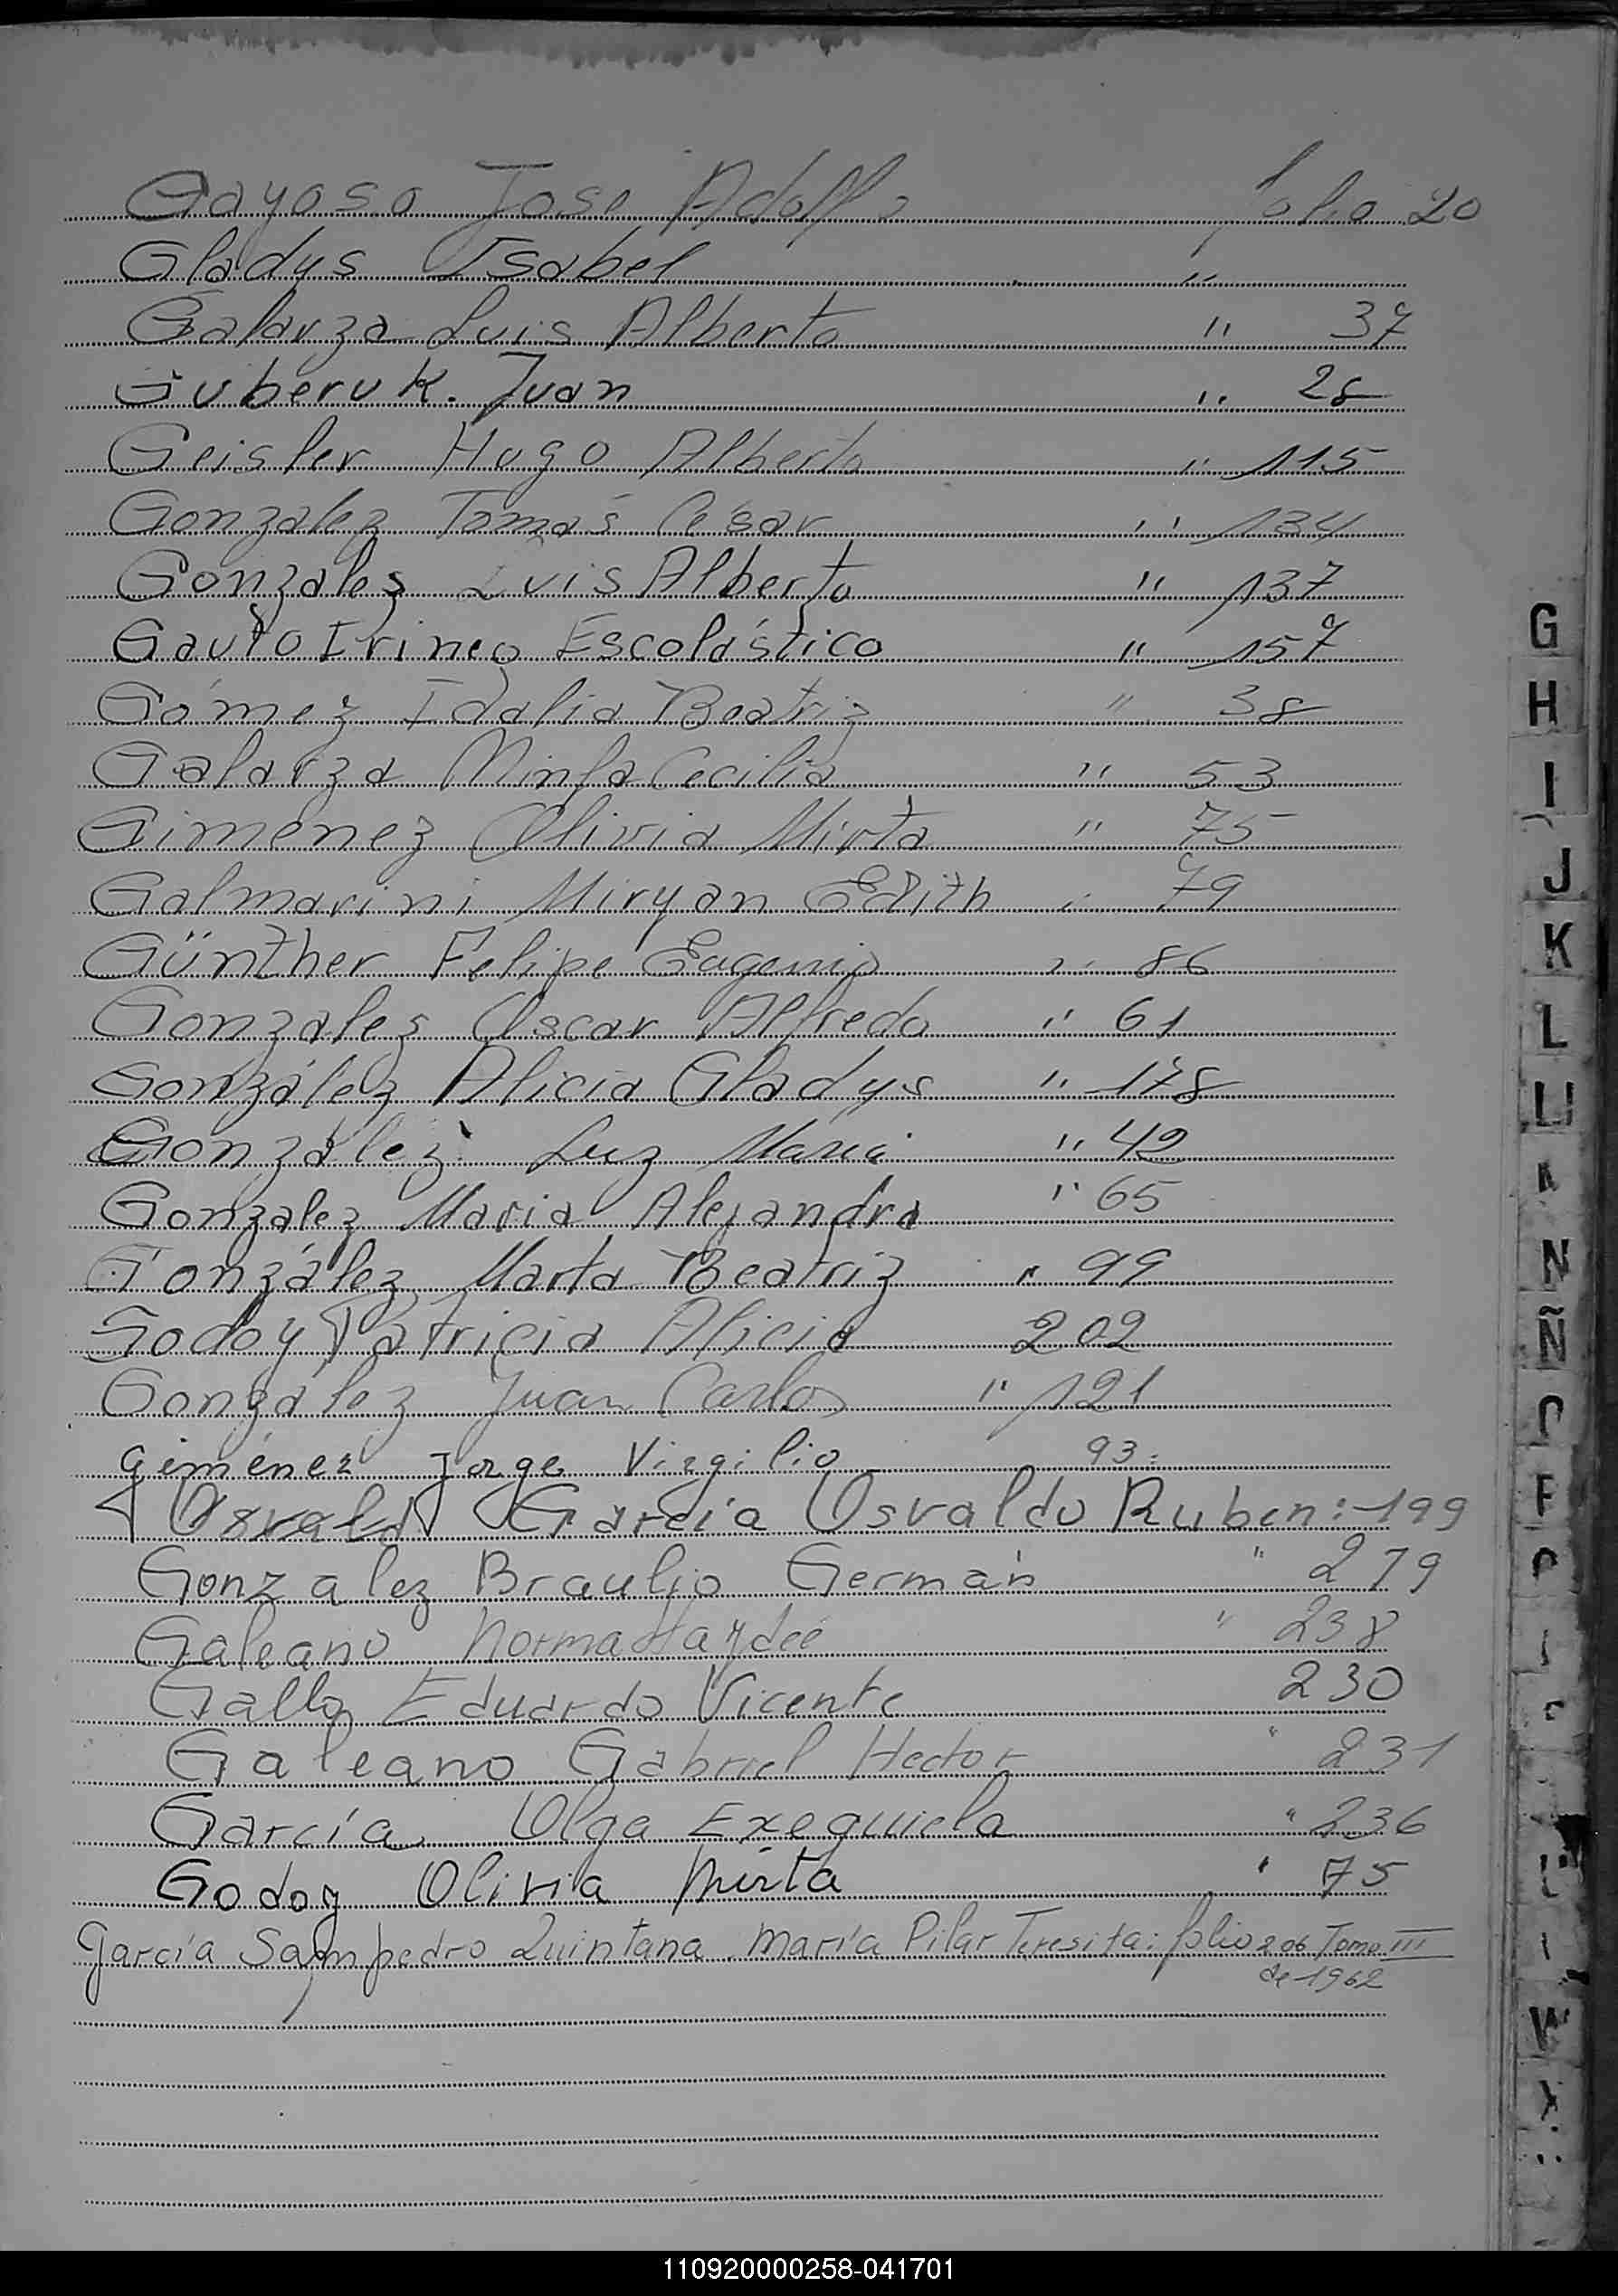 Gayoso Jose Adolfo folio 20
Gladys Isabel "
Galarza Luis Alberto " 37
Guberuk. Juan " 28
Geisler Hugo Alberto " 115
Gonzalez Tomás César " 134
Gonzales Luis Alberto " 137
Gauto Irineo Escolástico " 157
Gómez Idalia Beatriz " 38
Galarza Ninfa Cecilia " 53
Gimenez Olivia Mirta " 75
Galmarini Miryan Edith " 79
Günther Felipe Eugenio " 86
Gonzales Oscar Alfredo " 61
González Alicia Gladys " 178
González Luz Maria " 42
Gonzalez Maria Alejandra " 65
González Marta Beatriz " 99
Godoy Patricia Alicia 202
González Juan Carlos " 121
gimenez Jorge Virgilio 93.
Osvald García Osvaldo Ruben:-199
Gonzalez Braulio Germán " 279
Galeano Norma Haydée " 238
Gallo Eduardo Vicente 230
Galeano Gabriel Hector " 231
García Olga Exequiela " 236
Godoy Olivia Mirta " 75
García Sampedro Quintana María Pilar Teresita: folio 206 Tomo III
de 1962
G
H
I
J
K
L
LL
N
Ñ
O
P
W
X
110920000258-041701